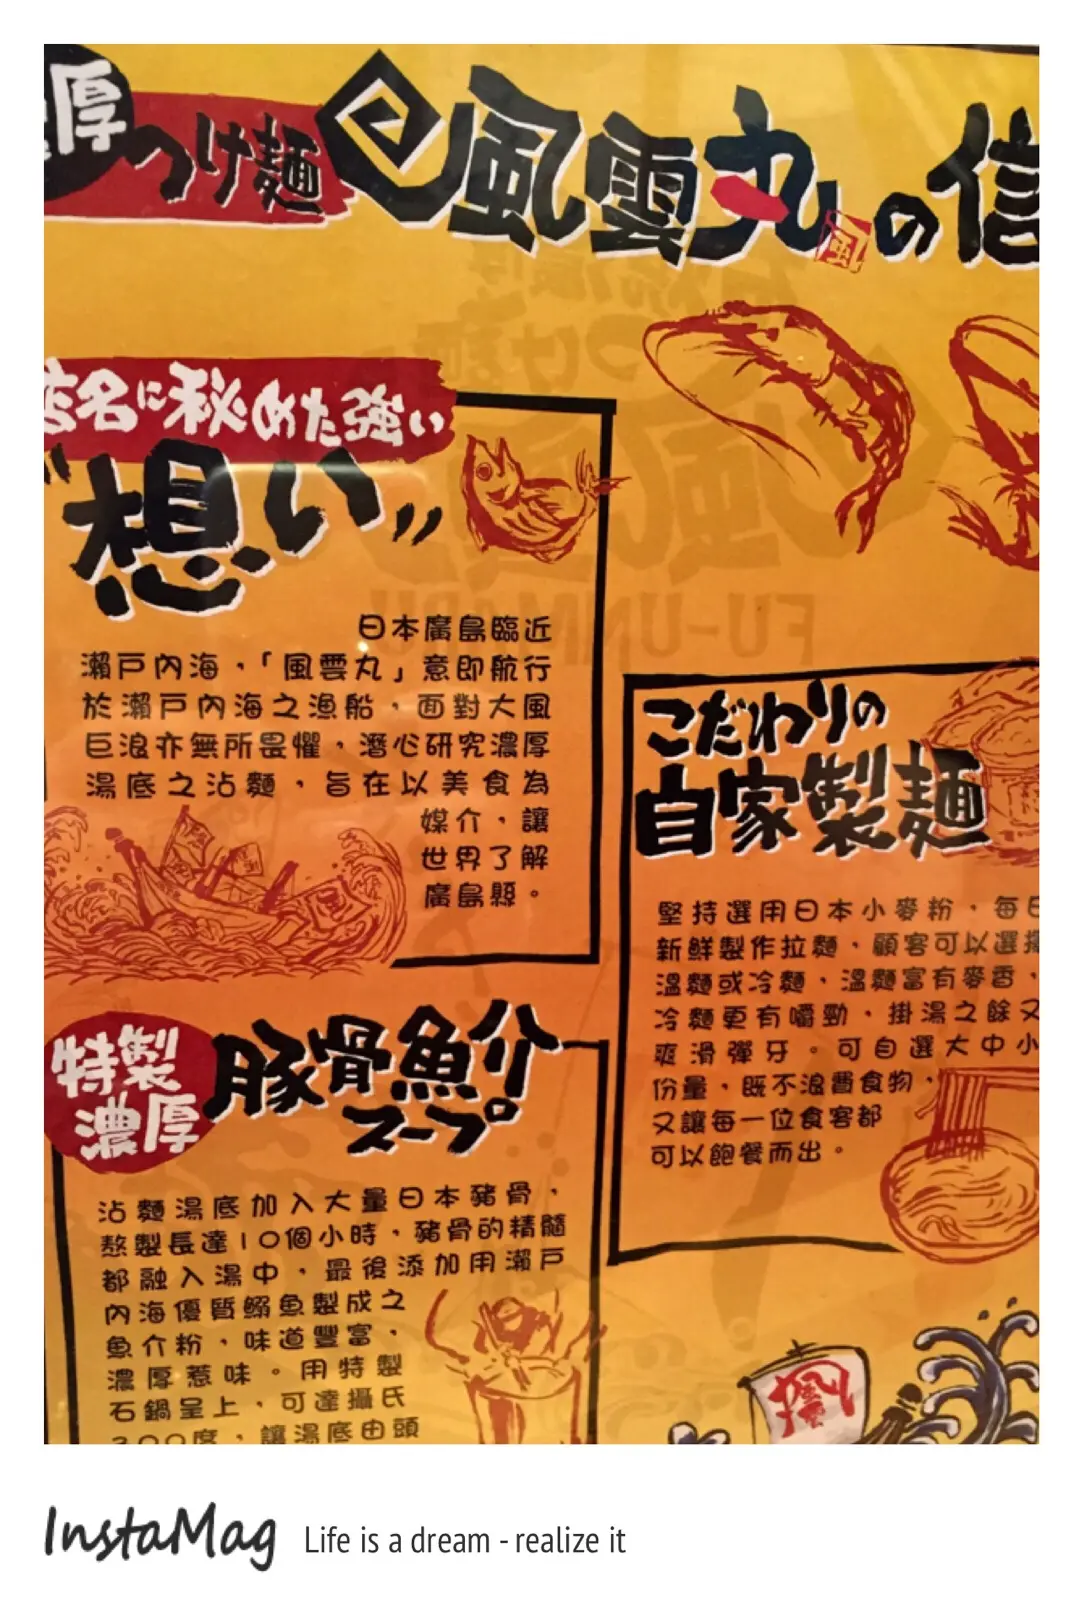 厚
つけ麺
風雲丸の信
風
店名に秘めた強い
"想い"
日本廣島臨近
瀨戶內海，「風雲丸」意即航行
於瀨戶內海之漁船，面對大風
巨浪亦無所畏懼，潛心研究濃厚
湯底之沾麵，旨在以美食為
媒介，讓
世界了解
廣島縣。
FU-UNMARU
こだわりの
自家製麺
堅持選用日本小麥粉，每日
新鮮製作拉麵，顧客可以選擇
溫麵或冷麵，溫麵富有麥香，
冷麵更有嚼勁，掛湯之餘又
爽滑彈牙。可自選大中小
份量，既不浪費食物，
又讓每一位食客都
可以飽餐而出。
特製
濃厚
豚骨魚介
スープ
沾麵湯底加入大量日本豬骨，
熬製長達10個小時，豬骨的精髓
都融入湯中，最後添加用瀨戶
內海優質鰯魚製成之
魚介粉，味道豐富，
濃厚惹味。用特製
石鍋呈上，可達攝氏
300度，讓湯底由頭
InstaMag Life is a dream - realize it